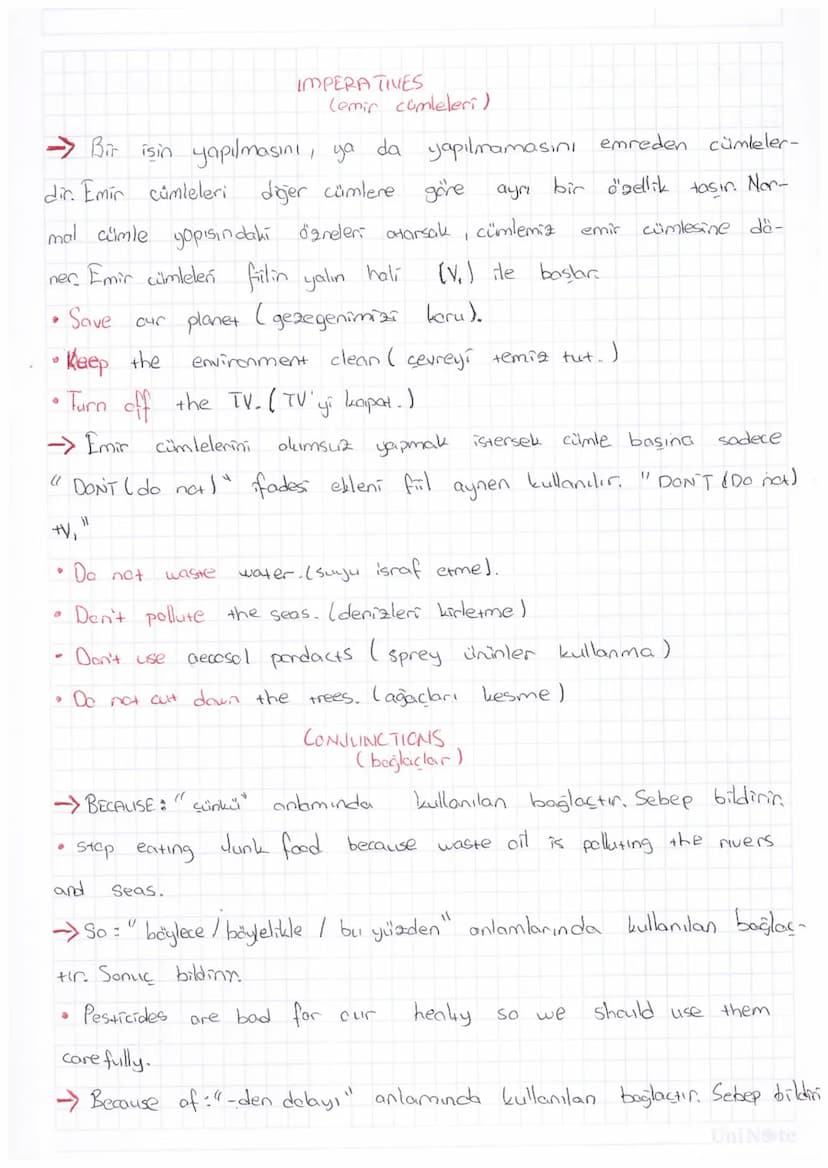 IMPERATIVES
(emir cümleleri)
→ Bir işin yapılmasını, ya da yapılmamasını emreden cümleler-
dir. Emir cümleleri diğer cümlere göre ayrı bir özellik taşır. Nor-
mal cümle yapısındaki özneleri atarsak, cümlemiz emir cümlesine dö-
ner. Emir cümleleri fiilin yalın hali (V₁) ile başlar.
• Save our planet (gezegenimizi koru).
• Keep the environment clean (çevreyi temiz tut.)
• Turn off the TV. (TV'yi kapat.)
→ Emir cümlelerini olumsuz yapmak istersek cümle başına sadece
" DON'T (do not)" ifadesi eklenir fiil aynen kullanılır. " DON'T (Do not)
+V₁"
• Do not waste water. (suyu israf etme).
• Don't pollute the seas. (denizleri kirletme)
• Don't use aecosol pordacts (sprey ürünler kullanma)
• Do not cut down the trees. (ağaçları kesme)
CONJUNCTIONS
(bağlaçlar)
→ BECAUSE: "çünkü" anlamında kullanılan bağlaçtır. Sebep bildirir.
• Stop eating Junk food because waste oil is polluting the rivers
and seas.
→ So = " böylece / böylelikle / bu yüzden" anlamlarında kullanılan bağlaç-
tır. Sonuç bildirir.
• Pesticides are bad for our healty so we should use them
carefully.
→ Because of: "-den dolayı" anlamında kullanılan bağlaçtır. Sebep bildiri
UniNote